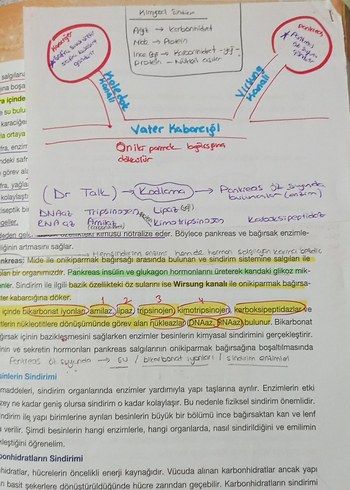 Kimyasal Sindirim
Ağız → Karbonhidrat
Mide → Protein
İnce bağ → Karbonhidrat - yağ -
protein - Nükleik asitler
Karaciğer
Pankreas
Pankreas
öz suyu
Koledok
Kanalı
Virsung
Kanalı
Vater Kabarcığı
Onikiparmak bağırsağına
dökülür
(Dr Talk) → Kodlama → Pankreas öz suyunda
DNAaz Tripsinojen Lipaz
RNAaz Amilaz Kimotripsinojen Karboksipeptidaz
kimusu nötralize eder. Böylece pankreas ve bağırsak enzimle-
liğinin artmasını sağlar.
nkreas: Mide ile onikiparmak bağırsağı arasında bulunan ve sindirim sistemine salgıları ile
lan bir organımızdır. Pankreas insülin ve glukagon hormonlarını üreterek kandaki glikoz mik-
enler. Sindirim ile ilgili bazik özellikteki öz sularını ise Wirsung kanalı ile onikiparmak bağırsa-
ater kabarcığına döker.
1 2 3 4
içinde bikarbonat iyonları, amilaz, lipaz, tripsinojen, kimotripsinojen, karboksipeptidazlar ve
tlerin nükleotitlere dönüşümünde görev alan nükleazlar (DNAaz, RNAaz) bulunur. Bikarbonat
ğırsak içinin bazikleşmesini sağlarken enzimler besinlerin kimyasal sindirimini gerçekleştirir.
nin ve sekretin hormonları pankreas salgılarının onikiparmak bağırsağına boşaltılmasında
Pankreas öz suyunda → su / bikarbonat iyonları / sindirim enzimleri
sinlerin Sindirimi
maddeleri, sindirim organlarında enzimler yardımıyla yapı taşlarına ayrılır. Enzimlerin etki
zey ne kadar geniş olursa sindirim o kadar kolaylaşır. Bu nedenle fiziksel sindirim önemlidir.
ndirim ile yapı birimlerine ayrılan besinlerin büyük bir bölümü ince bağırsaktan kan ve lenf
a verilir. Şimdi besinlerin hangi enzimlerle, hangi organlarda, nasıl sindirildiğini ve emilimin
rleştiğini öğrenelim.
bonhidratların Sindirimi
nhidratlar, hücrelerin öncelikli enerji kaynağıdır. Vücuda alınan karbonhidratlar ancak yapı
an basit şekerlere dönüştürüldüğünde hücre zarından geçebilir. Karbonhidratların sindirimi